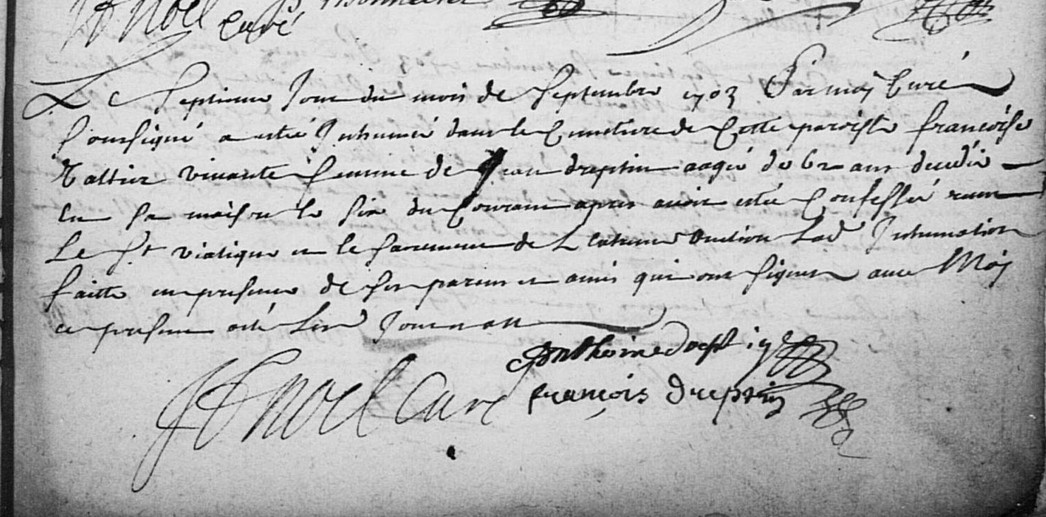 JF Noel
Curé
Le Septieme Jour du mois de Septembre 1703 Par moy Curé
soussigné a esté Inhumée dans le Cimetiere de Cette paroisse francoise
vivante femme de Jean dreptin aagée de 62 ans decedée
en sa maison le six du Courant apres avoir esté Confessée receu
Le St viatique et le sacrement de L extreme onction Lad Inhumation
faitte en presence de ses parens et amis qui ont signez avec Moy
ce present acte Les Jour et an
Anthoine drept
JF Noel Curé
françois dreptin